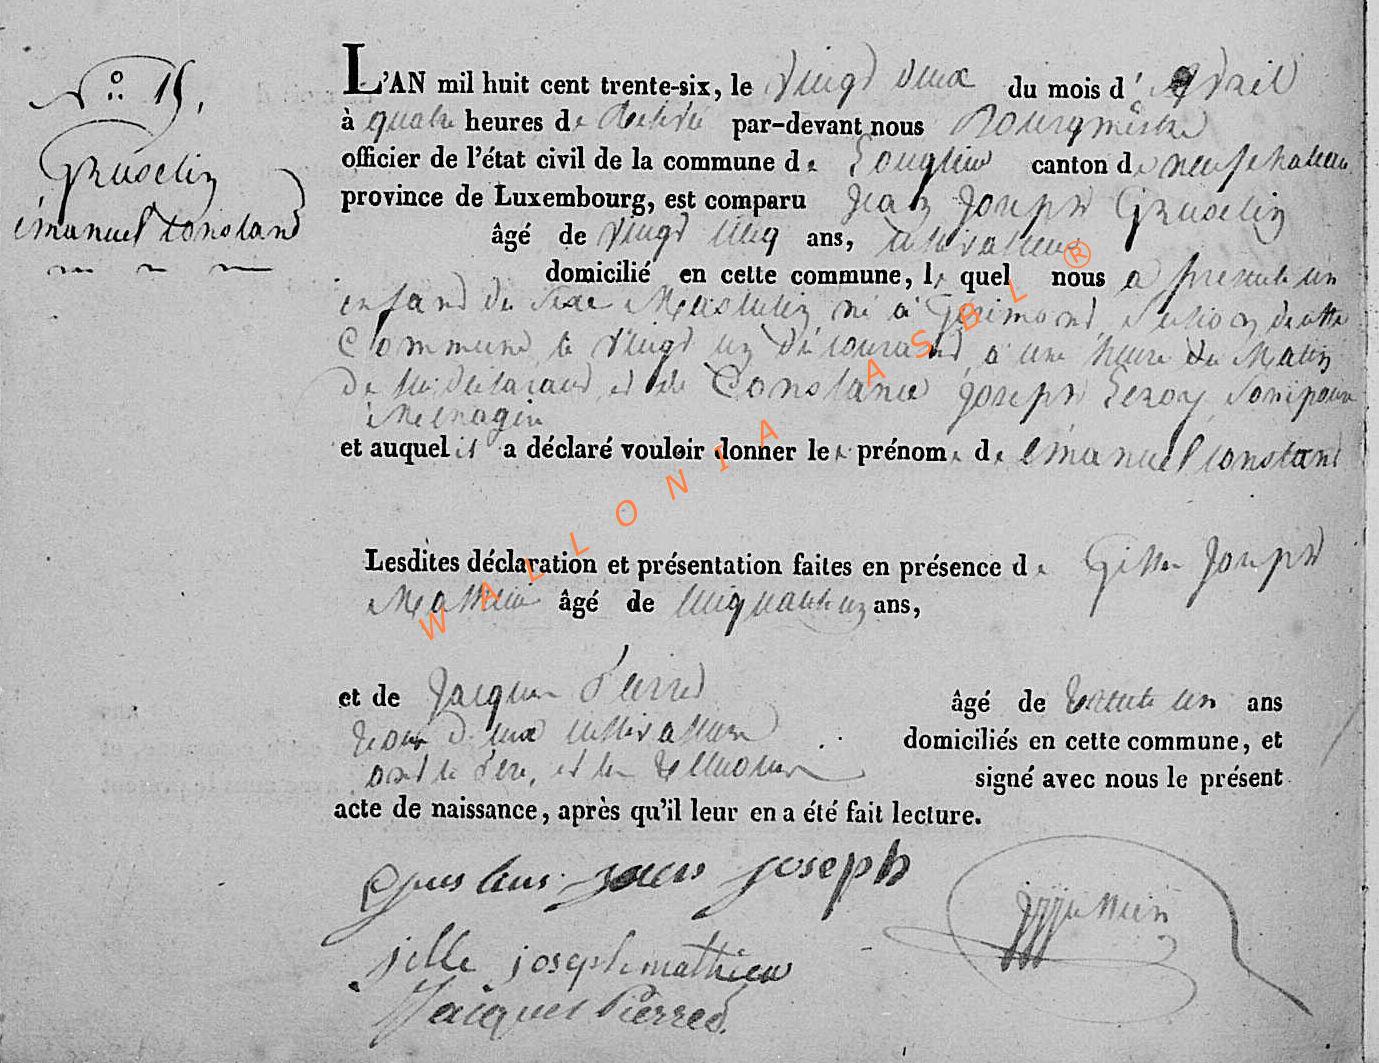 N° 15,
Gruselin
émanuel Constand
L'AN mil huit cent trente-six, le vingt deux du mois d' Avril
à quatre heures de Relevée par-devant nous Bourgmestre
officier de l'état civil de la commune de Longlier canton de neufchateau
province de Luxembourg, est comparu Jean Joseph Gruselin
âgé de vingt cinq ans, cultivateur
domicilié en cette commune, le quel nous a presenté un
enfant du sexe Masculin né à Gérimont, section de cette
Commune le vingt un du courant, à une heure du Matin
de lui Déclarant, et de Constance Joseph Leroy, son epouse
Menagère
et auquel il a déclaré vouloir donner les prénoms de émanuel Constant
Lesdites déclaration et présentation faites en présence de Gille Joseph
Mathieu âgé de cinquante un ans,
et de Jacques Pierred âgé de trente un ans
tous deux cultivateurs domiciliés en cette commune, et
ont le Père, et les temoins signé avec nous le présent
acte de naissance, après qu'il leur en a été fait lecture.
jean joseph
jille joseph mathieu
Jacques Pierred.
WALLONIA ASBL ®